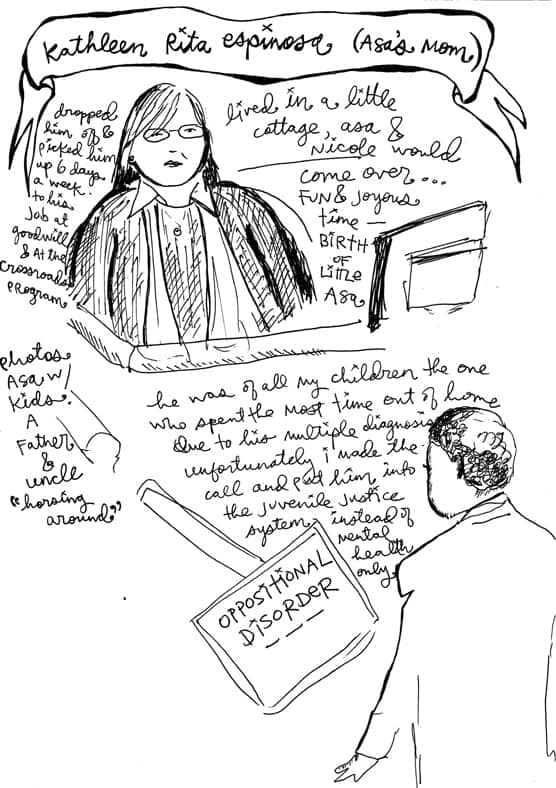 Kathleen Rita Espinosa (Asa's Mom)
dropped
him off &
picked him
up 6 days
a week.
to his
job at
goodwill
& at the
crossroads
program
lived in a little
cottage, asa &
Nicole would
come over...
FUN & Joyous
time —
BIRTH
OF
Little
Asa
photos
Asa w/
Kids.
A
Father
&
uncle
"horsing
around"
he was of all my children the one
who spent the most time out of home
due to his multiple diagnosis
unfortunately i made the
call and put him into
the juvenile justice
system instead of
mental
health
only
OPPOSITIONAL
DISORDER